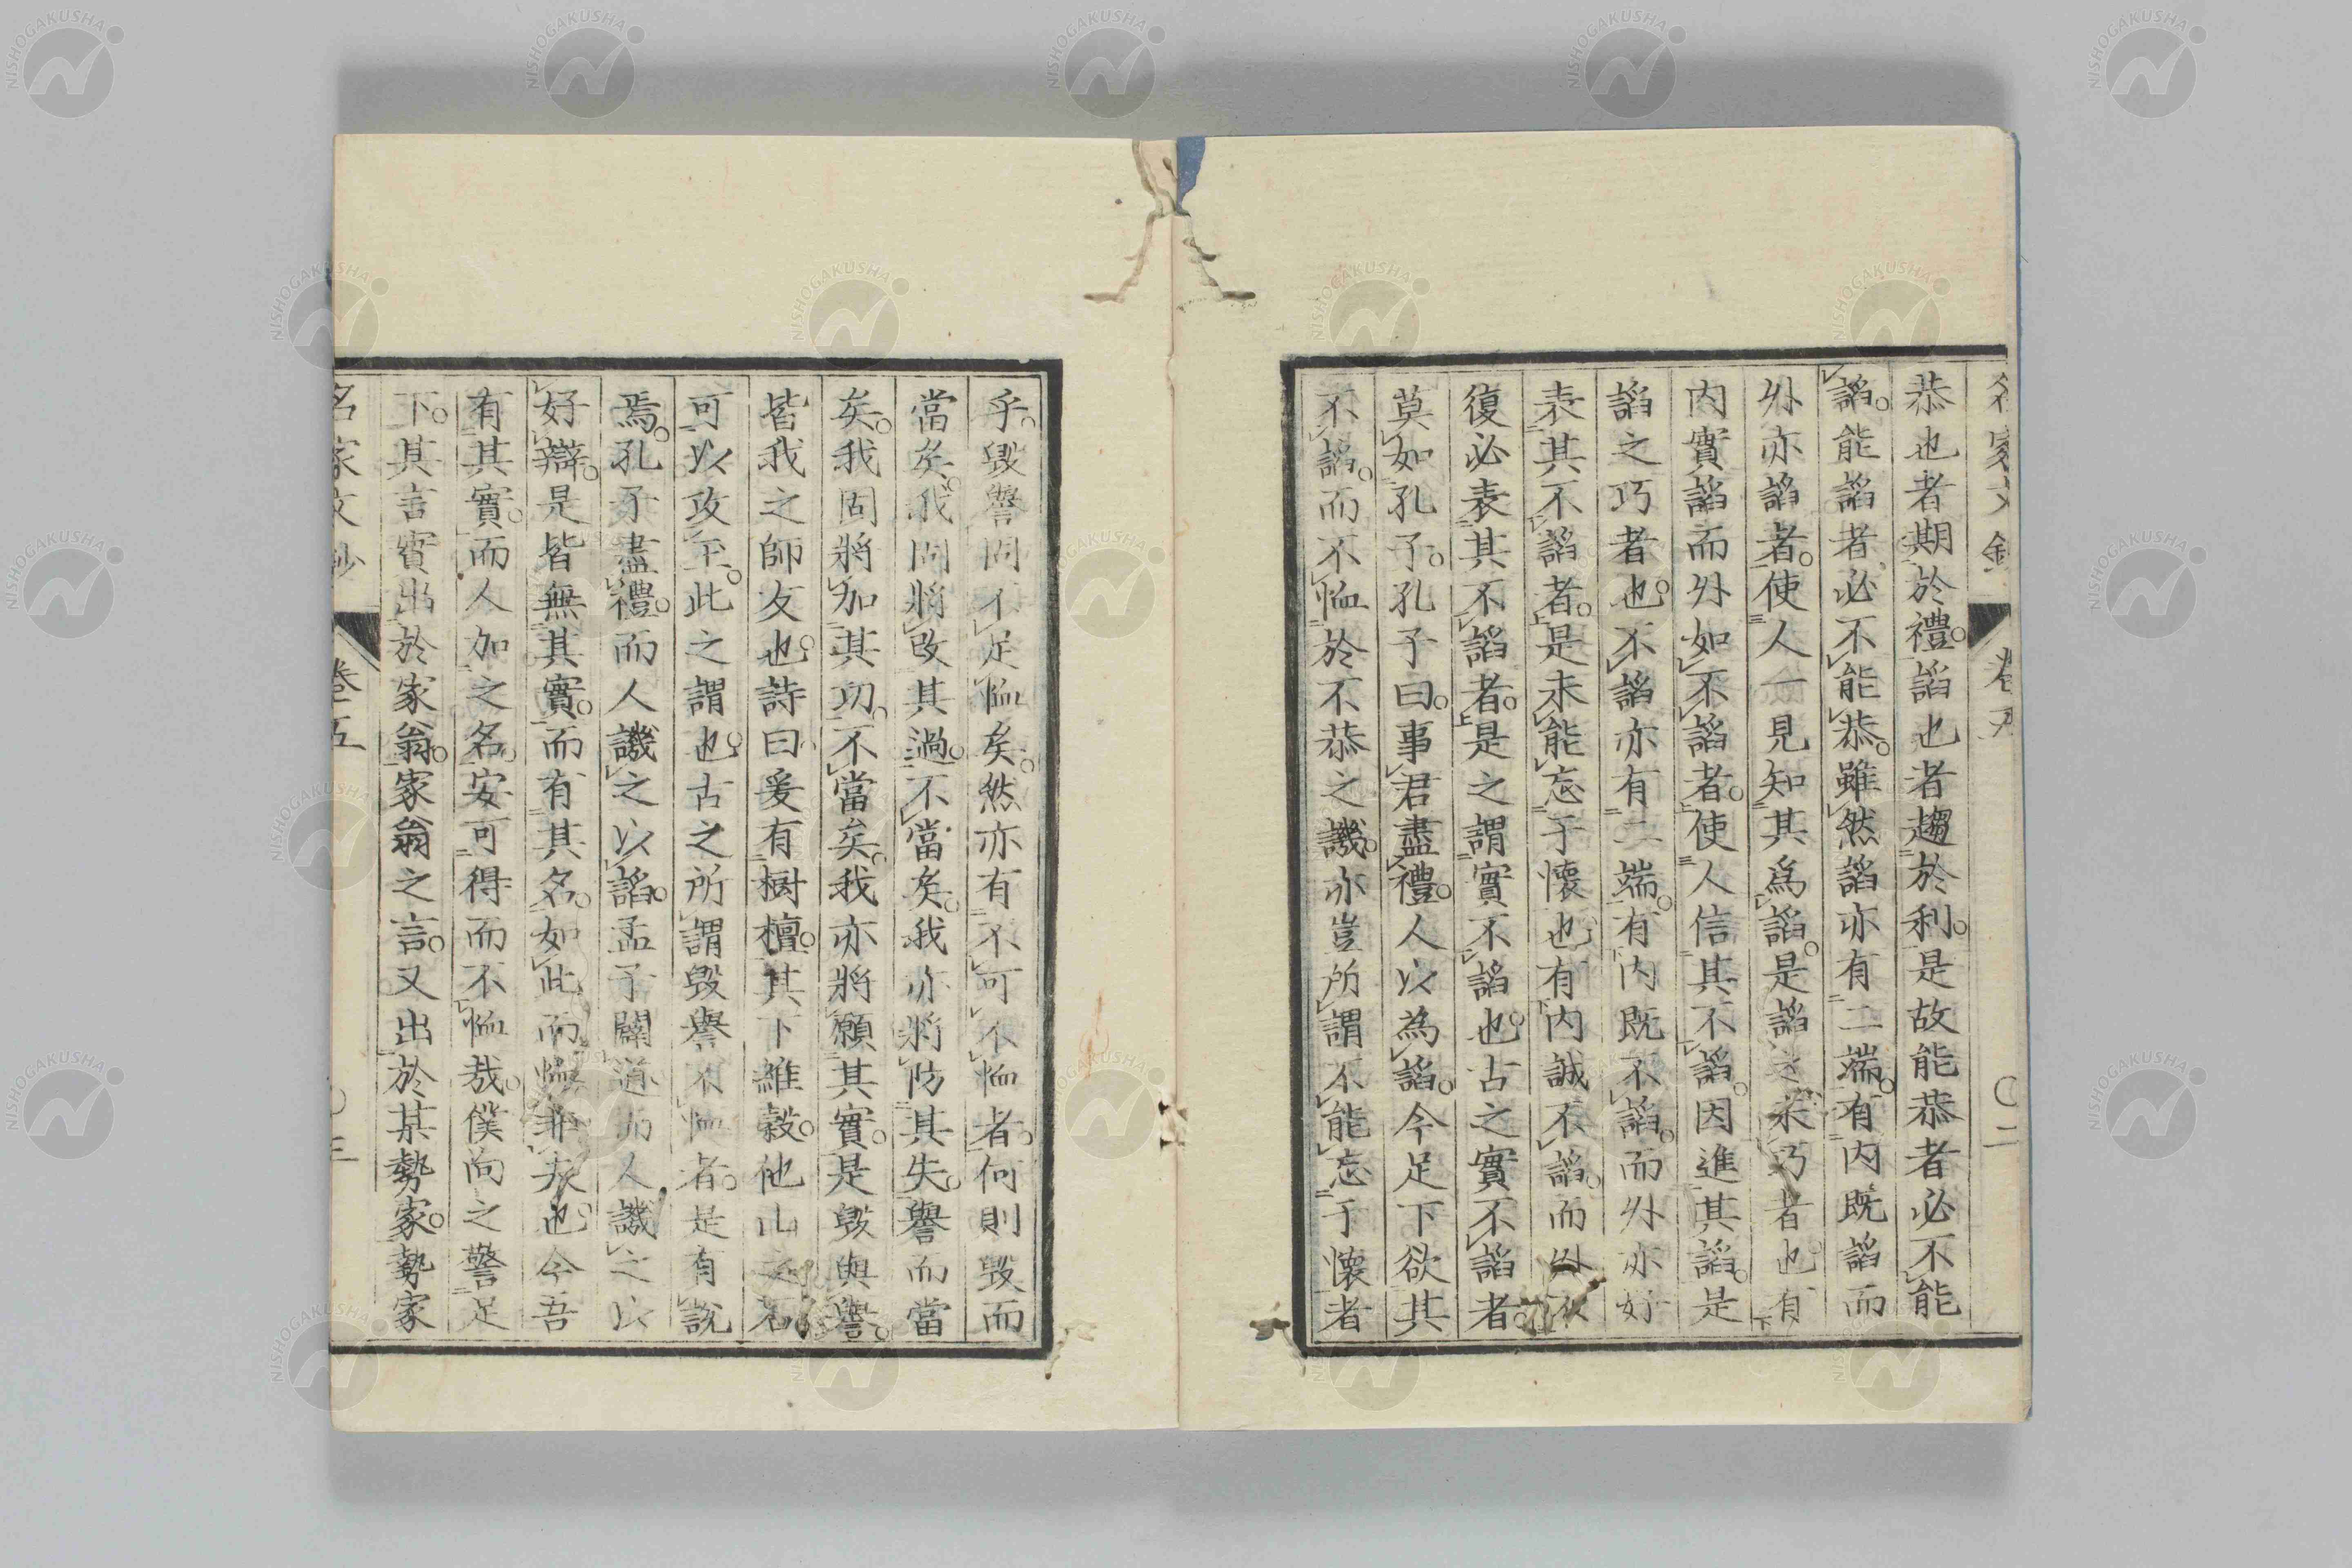 恭也者期於禮。謟也者趨於利。是故能恭者必不能
謟。能謟者必不能恭。雖然謟亦有二端。有內既謟而
外亦謟者。使人一見知其為謟。是謟之未巧者也有
内實謟而外如不謟者。使人信其不謟。因進其謟。是
謟之巧者也。不謟亦有二端。有內既不謟。而外亦好
表其不謟者。是未能忘于懷也有内誠不謟。而外不
復必表其不謟者。是之謂實不謟也。古之實不謟者。
莫如孔子。孔子曰。事君盡禮。人以為謟。今足下欲其
不謟。而不恤於不恭之譏。亦豈所謂不能忘于懷者
乎。毀譽固不足恤矣。然亦有不可不恤者。何則毀而
當矣。我固將改其過。不當矣。我亦將防其失。譽而當
矣。我固將加其功。不當矣。我亦將願其實。是毀與譽。
皆我之師友也。詩曰爰有樹檀。其下維穀。他山之石。
可以攻玉。此之謂也。古之所謂毀譽不恤者。是有說
焉。孔子盡禮。而人譏之以謟。孟子闢道而人譏之以
好辯。是皆無其實。而有其名。如此而恤非夫也。今吾
有其實。而人加之名。安可得而不恤哉。僕向之警足
下。其言實出於家翁。家翁之言。又出於某勢家。勢家
名家文鈔
卷五
〇三
卷五
〇二